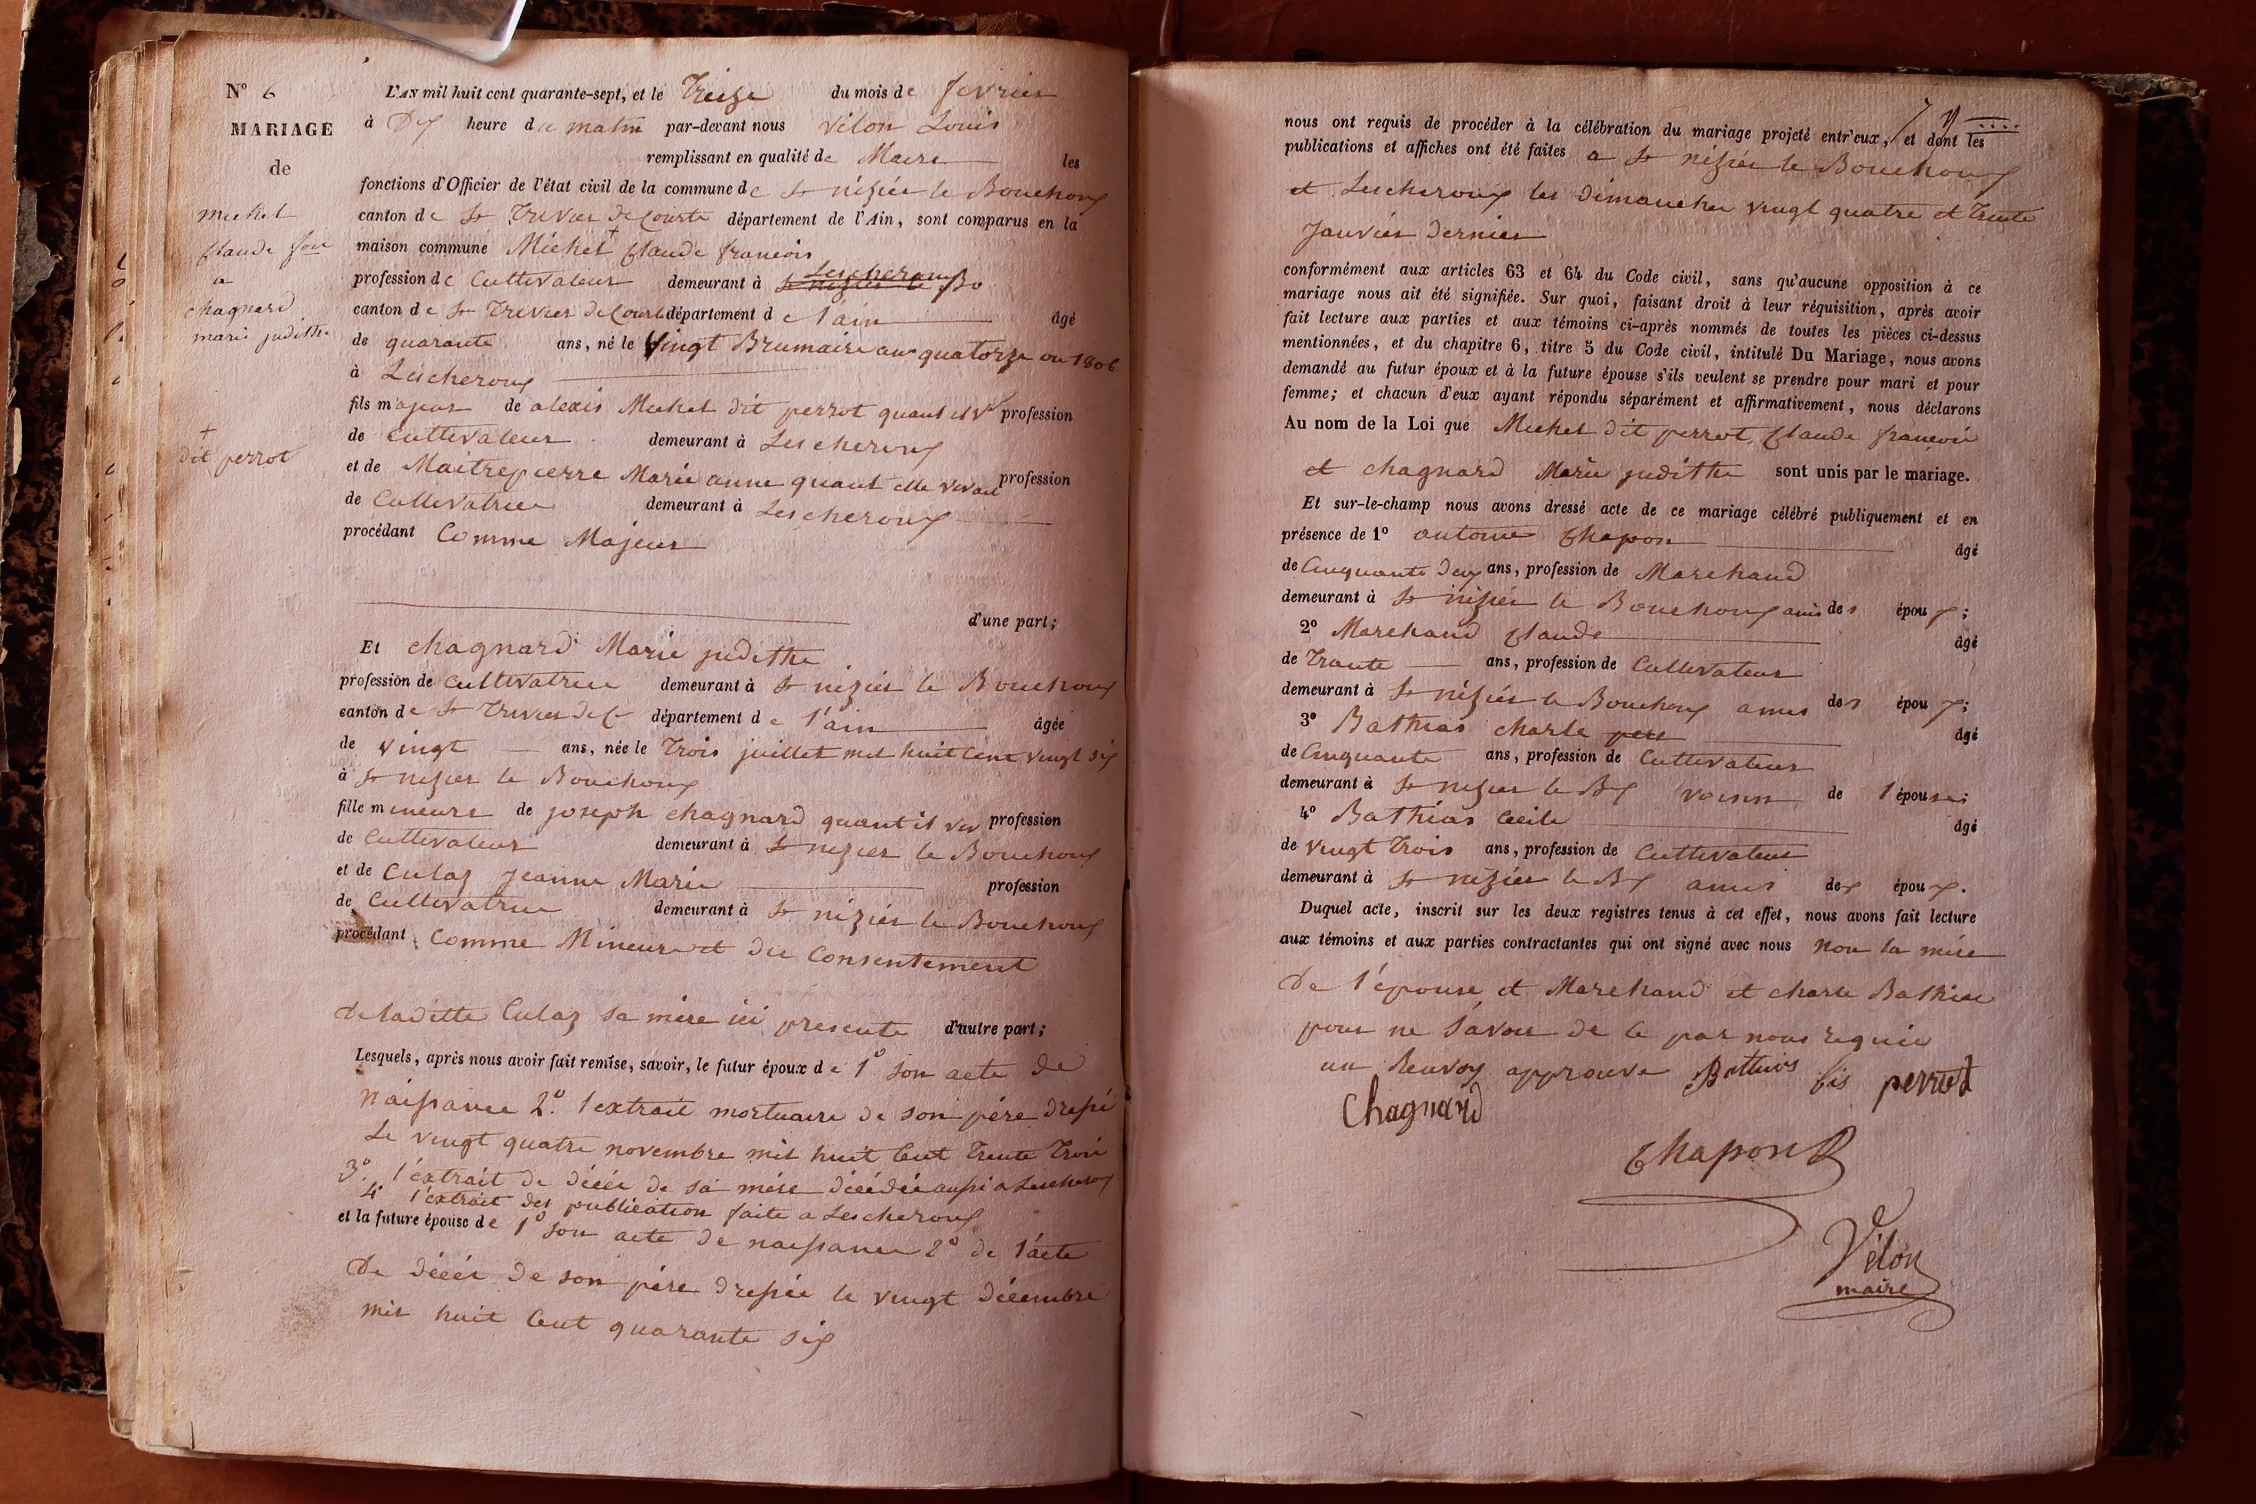 N° 6
MARIAGE
de
michel
Claude fois
a
chagnard
marie judithe
+
dit perrot
L'AN mil huit cent quarante-sept, et le Treize du mois de fevrier
à Dix heure du matin par-devant nous Vélon Louis
remplissant en qualité de Maire les
fonctions d'Officier de l'état civil de la commune de St nizier le Bouchoux
canton de St Trivier de Courte département de l'Ain, sont comparus en la
maison commune Michel + Claude francois
profession de Cultivateur demeurant à Lescheroux
canton de St Trivier de Courte département de l'ain âgé
de quarante ans, né le Vingt Brumaire an quatorze ou 1806
à Lescheroux
fils majeur de alexis Michel dit perrot quant il V profession
de Cultivateur demeurant à Lescheroux
et de Maitrepierre Marie anne quant elle vivait profession
de Cultivatrice demeurant à Lescheroux
procédant Comme Majeur
d'une part;
Et chagnard Marie judithe
profession de Cultivatrice demeurant à St nizier le Bouchoux
canton de St Trivier de C département de l'ain âgée
de vingt ans, née le Trois juillet mil huit cent vingt six
à St nizier le Bouchoux
fille mineure de joseph chagnard quant il viv profession
de Cultivateur demeurant à St nizier le Bouchoux
et de Culaz jeanne Marie profession
de Cultivatrice demeurant à St nizier le Bouchoux
procédant Comme Mineure et du Consentement
de laditte Culaz sa mère ici presente d'autre part;
Lesquels, après nous avoir fait remise, savoir, le futur époux de 1° son acte de
naissance 2° l'extrait mortuaire de son père dressé
Le vingt quatre novembre mil huit Cent Trente Trois
3° l'extrait de décée de sa mére décédée aussi a Lescheroux
4° l'extrait des publication faite a Lescheroux
et la future épouse de 1° son acte de naissance 2° de l'acte
De décée de son pére dressée le vingt décembre
mil huit Cent quarante six
nous ont requis de procéder à la célébration du mariage projeté entr'eux, et dont les
publications et affiches ont été faites a St nizier le Bouchoux
et Lescheroux les dimanches vingt quatre et Trente
Janvier dernier
conformément aux articles 63 et 64 du Code civil, sans qu'aucune opposition à ce
mariage nous ait été signifiée. Sur quoi, faisant droit à leur réquisition, après avoir
fait lecture aux parties et aux témoins ci-après nommés de toutes les pièces ci-dessus
mentionnées, et du chapitre 6, titre 5 du Code civil, intitulé Du Mariage, nous avons
demandé au futur époux et à la future épouse s'ils veulent se prendre pour mari et pour
femme; et chacun d'eux ayant répondu séparément et affirmativement, nous déclarons
Au nom de la Loi que Michel dit perrot Claude francois
et chagnard Marie judithe sont unis par le mariage.
Et sur-le-champ nous avons dressé acte de ce mariage célébré publiquement et en
présence de 1° antoine Chapon âgé
de Cinquante deux ans, profession de Marchand
demeurant à St nizier le Bouchoux amis des époux;
2° Marchand Claude âgé
de Trante ans, profession de Cultivateur
demeurant à St nizier le Bouchoux amis des époux;
3° Bathias charle pere âgé
de Cinquante ans, profession de Cultivateur
demeurant à St nizier le Bx voisin de l'épouse;
4° Bathias Cecile âgé
de vingt Trois ans, profession de Cultivateur
demeurant à St nizier le Bx amis des époux.
Duquel acte, inscrit sur les deux registres tenus à cet effet, nous avons fait lecture
aux témoins et aux parties contractantes qui ont signé avec nous non la mére
De l'épouse et Marchand et charle Bathias
pour ne savoir de ce par nous requis
un Renvoy approuvé Bathias fis perrot
Chagnard
Chapon
Vélon
maire